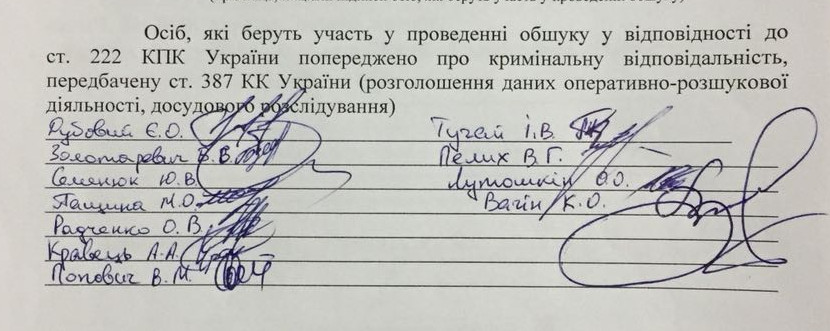 Осіб, які беруть участь у проведенні обшуку у відповідності до
ст. 222 КПК України попереджено про кримінальну відповідальність,
передбачену ст. 387 КК України (розголошення даних оперативно-розшукової
діяльності, досудового розслідування)
Рубовий Є.О.
Тучай І.В.
Золотаревич В.В.
Пелих В.Г.
Семенюк Ю.В.
Лутошкін О.О.
Пащина М.О.
Вагін К.О.
Радченко О.В.
Кравець А.А.
Попович В.М.